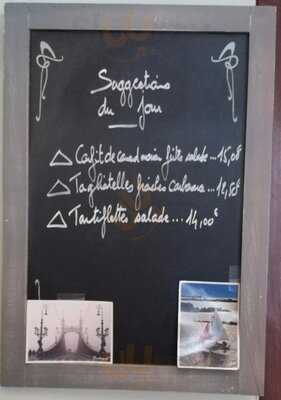 Suggestions
du jour
Confit de canard maison frites salade ... 15,00€
Tagliatelles fraîches carbonara ... 14,50€
Tartiflettes salade ... 14,00€